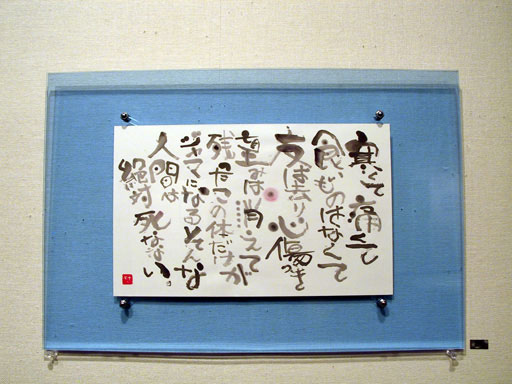 寒くて痛くて
食いものはなくて
友は去り心傷つき
望みは消えて
残るこの体だけが
ジャマになるそんな
人間は
絶対死なない。